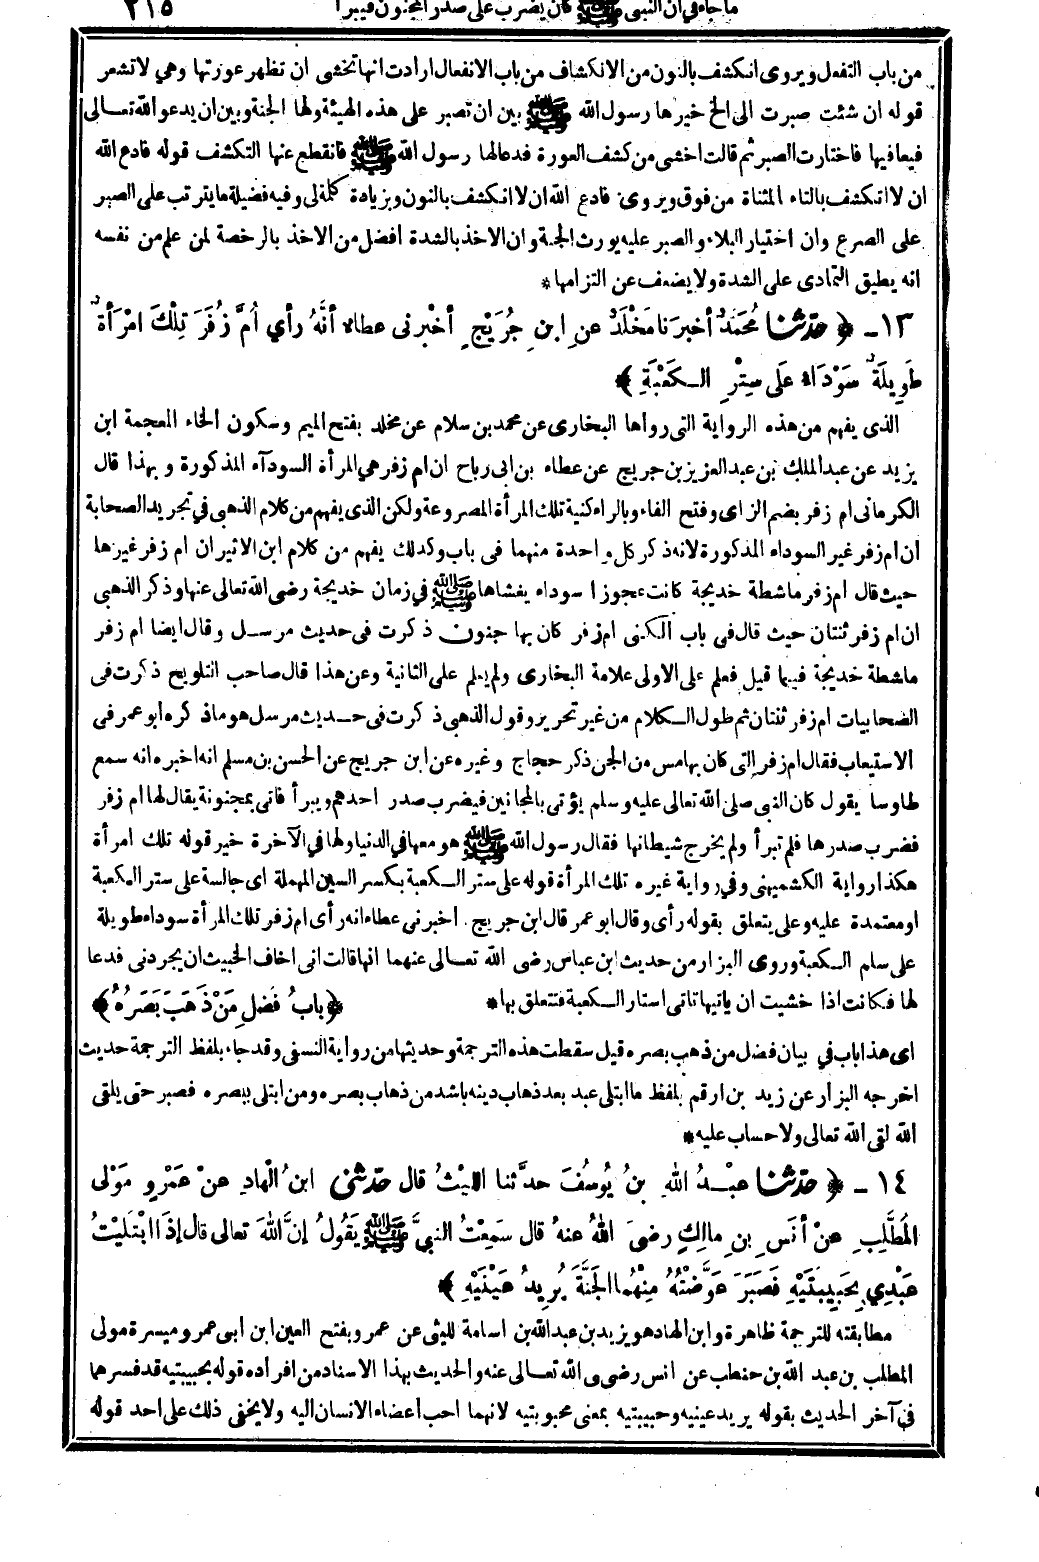 ما جاء في أن النبي ﷺ كان يضرب على صدر المجنون فيبرأ ٢١٥
من باب التفعل ويروى انكشف بالنون من الانكشاف من باب الانفعال ارادت انها تخشى ان تظهر عورتها وهي لا تشعر
قوله ان شئت صبرت الى الخ خيرها رسول الله ﷺ بين ان تصبر على هذه الهيئة ولها الجنة وبين ان يدعو الله تعالى
فيعافيها فاختارت الصبر ثم قالت اخشى من كشف العورة فدعا لها رسول الله ﷺ فانقطع عنها التكشف قوله فادع الله
ان لا اتكشف بالتاء المثناة من فوق ويروى فادع الله ان لا انكشف بالنون وبزيادة كلمة لى وفيه فضيلة ما يترتب على الصبر
على الصرع وان اختيار البلاء والصبر عليه يورث الجنة وان الاخذ بالشدة افضل من الاخذ بالرخصة لمن علم من نفسه
انه يطيق التمادى على الشدة ولا يضعف عن التزامها *
١٣ - ﴿ حَدَّثَنَا مُحَمَّدٌ أخبرَنا مَخْلَدٌ عنِ ابنِ جُرَيْجٍ أخبرنى عطاء أنَّهُ رأي أُمَّ زُفَرَ تِلْكَ امْرَأةٌ
طَوِيلَةٌ سَوْدَاءُ عَلَى سِتْرِ الكَعْبَةِ ﴾
الذى يفهم من هذه الرواية التى رواها البخارى عن محمد بن سلام عن مخلد بفتح الميم وسكون الخاء المعجمة ابن
يزيد عن عبد الملك بن عبد العزيز بن جريج عن عطاء بن ابى رباح ان ام زفر هي المرأة السودآء المذكورة وبهذا قال
الكرمانى ام زفر بضم الزاى وفتح الفاء وبالراء كنية تلك المرأة المصروعة ولكن الذى يفهم من كلام الذهبى في تجريد الصحابة
ان ام زفر غير السوداء المذكورة لانه ذكر كل واحدة منهما فى باب وكذلك يفهم من كلام ابن الاثير ان ام زفر غيرها
حيث قال ام زفر ماشطة خديجة كانت عجوزا سوداء يغشاها ﷺ في زمان خديجة رضى الله تعالى عنها وذكر الذهبى
ان ام زفر ثنتان حيث قال فى باب الكنى ام زفر كان بها جنون ذكرت فى حديث مرسل وقال ايضا ام زفر
ماشطة خديجة فيما قيل فعلم على الاولى علامة البخارى ولم يعلم على الثانية وعن هذا قال صاحب التلويح ذكرت فى
الصحابيات ام زفر ثنتان ثم طول الكلام من غير تحرير وقول الذهبى ذكرت فى حديث مرسل هو ما ذكره ابو عمر فى
الاستيعاب فقال ام زفر التى كان بها مس من الجن ذكر حجاج وغيره عن ابن جريج عن الحسن بن مسلم انه اخبره انه سمع
طاوسا يقول كان النبى صلى الله تعالى عليه وسلم يؤتى بالمجانين فيضرب صدر احدهم ويبرأ فاتى بمجنونة يقال لها ام زفر
فضرب صدرها فلم تبرأ ولم يخرج شيطانها فقال رسول الله ﷺ هو معها في الدنيا ولها في الآخرة خير قوله تلك امرأة
هكذا رواية الكشميهنى وفي رواية غيره تلك المرأة قوله على ستر الكعبة بكسر السين المهملة اى جالسة على ستر الكعبة
او معتمدة عليه وعلى يتعلق بقوله رأى وقال ابو عمر قال ابن جريج اخبرنى عطاء انه رأى ام زفر تلك المرأة سوداء طويلة
على سلم الكعبة وروى البزار من حديث ابن عباس رضى الله تعالى عنهما انها قالت انى اخاف الخبيث ان يجردنى فدعا
لها فكانت اذا خشيت ان ياتيها تاتى استار الكعبة فتتعلق بها * ﴿ بابُ فَضْلِ مَنْ ذَهَبَ بَصَرُهُ ﴾
اى هذا باب في بيان فضل من ذهب بصره قيل سقطت هذه الترجمة وحديثها من رواية النسفى وقد جاء بلفظ الترجمة حديث
اخرجه البزار عن زيد بن ارقم بلفظ ما ابتلى عبد بعد ذهاب دينه باشد من ذهاب بصره ومن ابتلى ببصره فصبر حتى يلقى
الله لقى الله تعالى ولا حساب عليه *
١٤ - ﴿ حَدَّثَنَا عبْدُ اللهِ بنُ يُوسُفَ حدَّثنا اللَّيْثُ قال حَدَّثَنِى ابنُ الْهَادِ عنْ عَمْرٍو مَوْلى
المُطَّلِبِ عنْ أنَسِ بنِ مالِكٍ رضىَ اللهُ عنهُ قال سَمِعْتُ النبيَّ ﷺ يَقُولُ إنَّ اللهَ تعالى قال إذَا ابْتَلَيْتُ
عَبْدِي بِحَبِيبَتَيْهِ فَصَبَرَ عَوَّضْتُهُ مِنْهُمَا الجَنَّةَ يُرِيدُ عَيْنَيْهِ ﴾
مطابقته للترجمة ظاهرة وابن الهاد هو يزيد بن عبد الله بن اسامة الليثى عن عمرو بفتح العين ابن أبى عمر وميسرة مولى
المطلب بن عبد الله بن حنطب عن انس رضى الله تعالى عنه والحديث بهذا الاسناد من افراده قوله بحبيبتيه قد فسرهما
في آخر الحديث بقوله يريد عينيه وحبيبتيه بمعنى محبوبتيه لانهما احب أعضاء الانسان اليه ولا يخفى ذلك على احد قوله